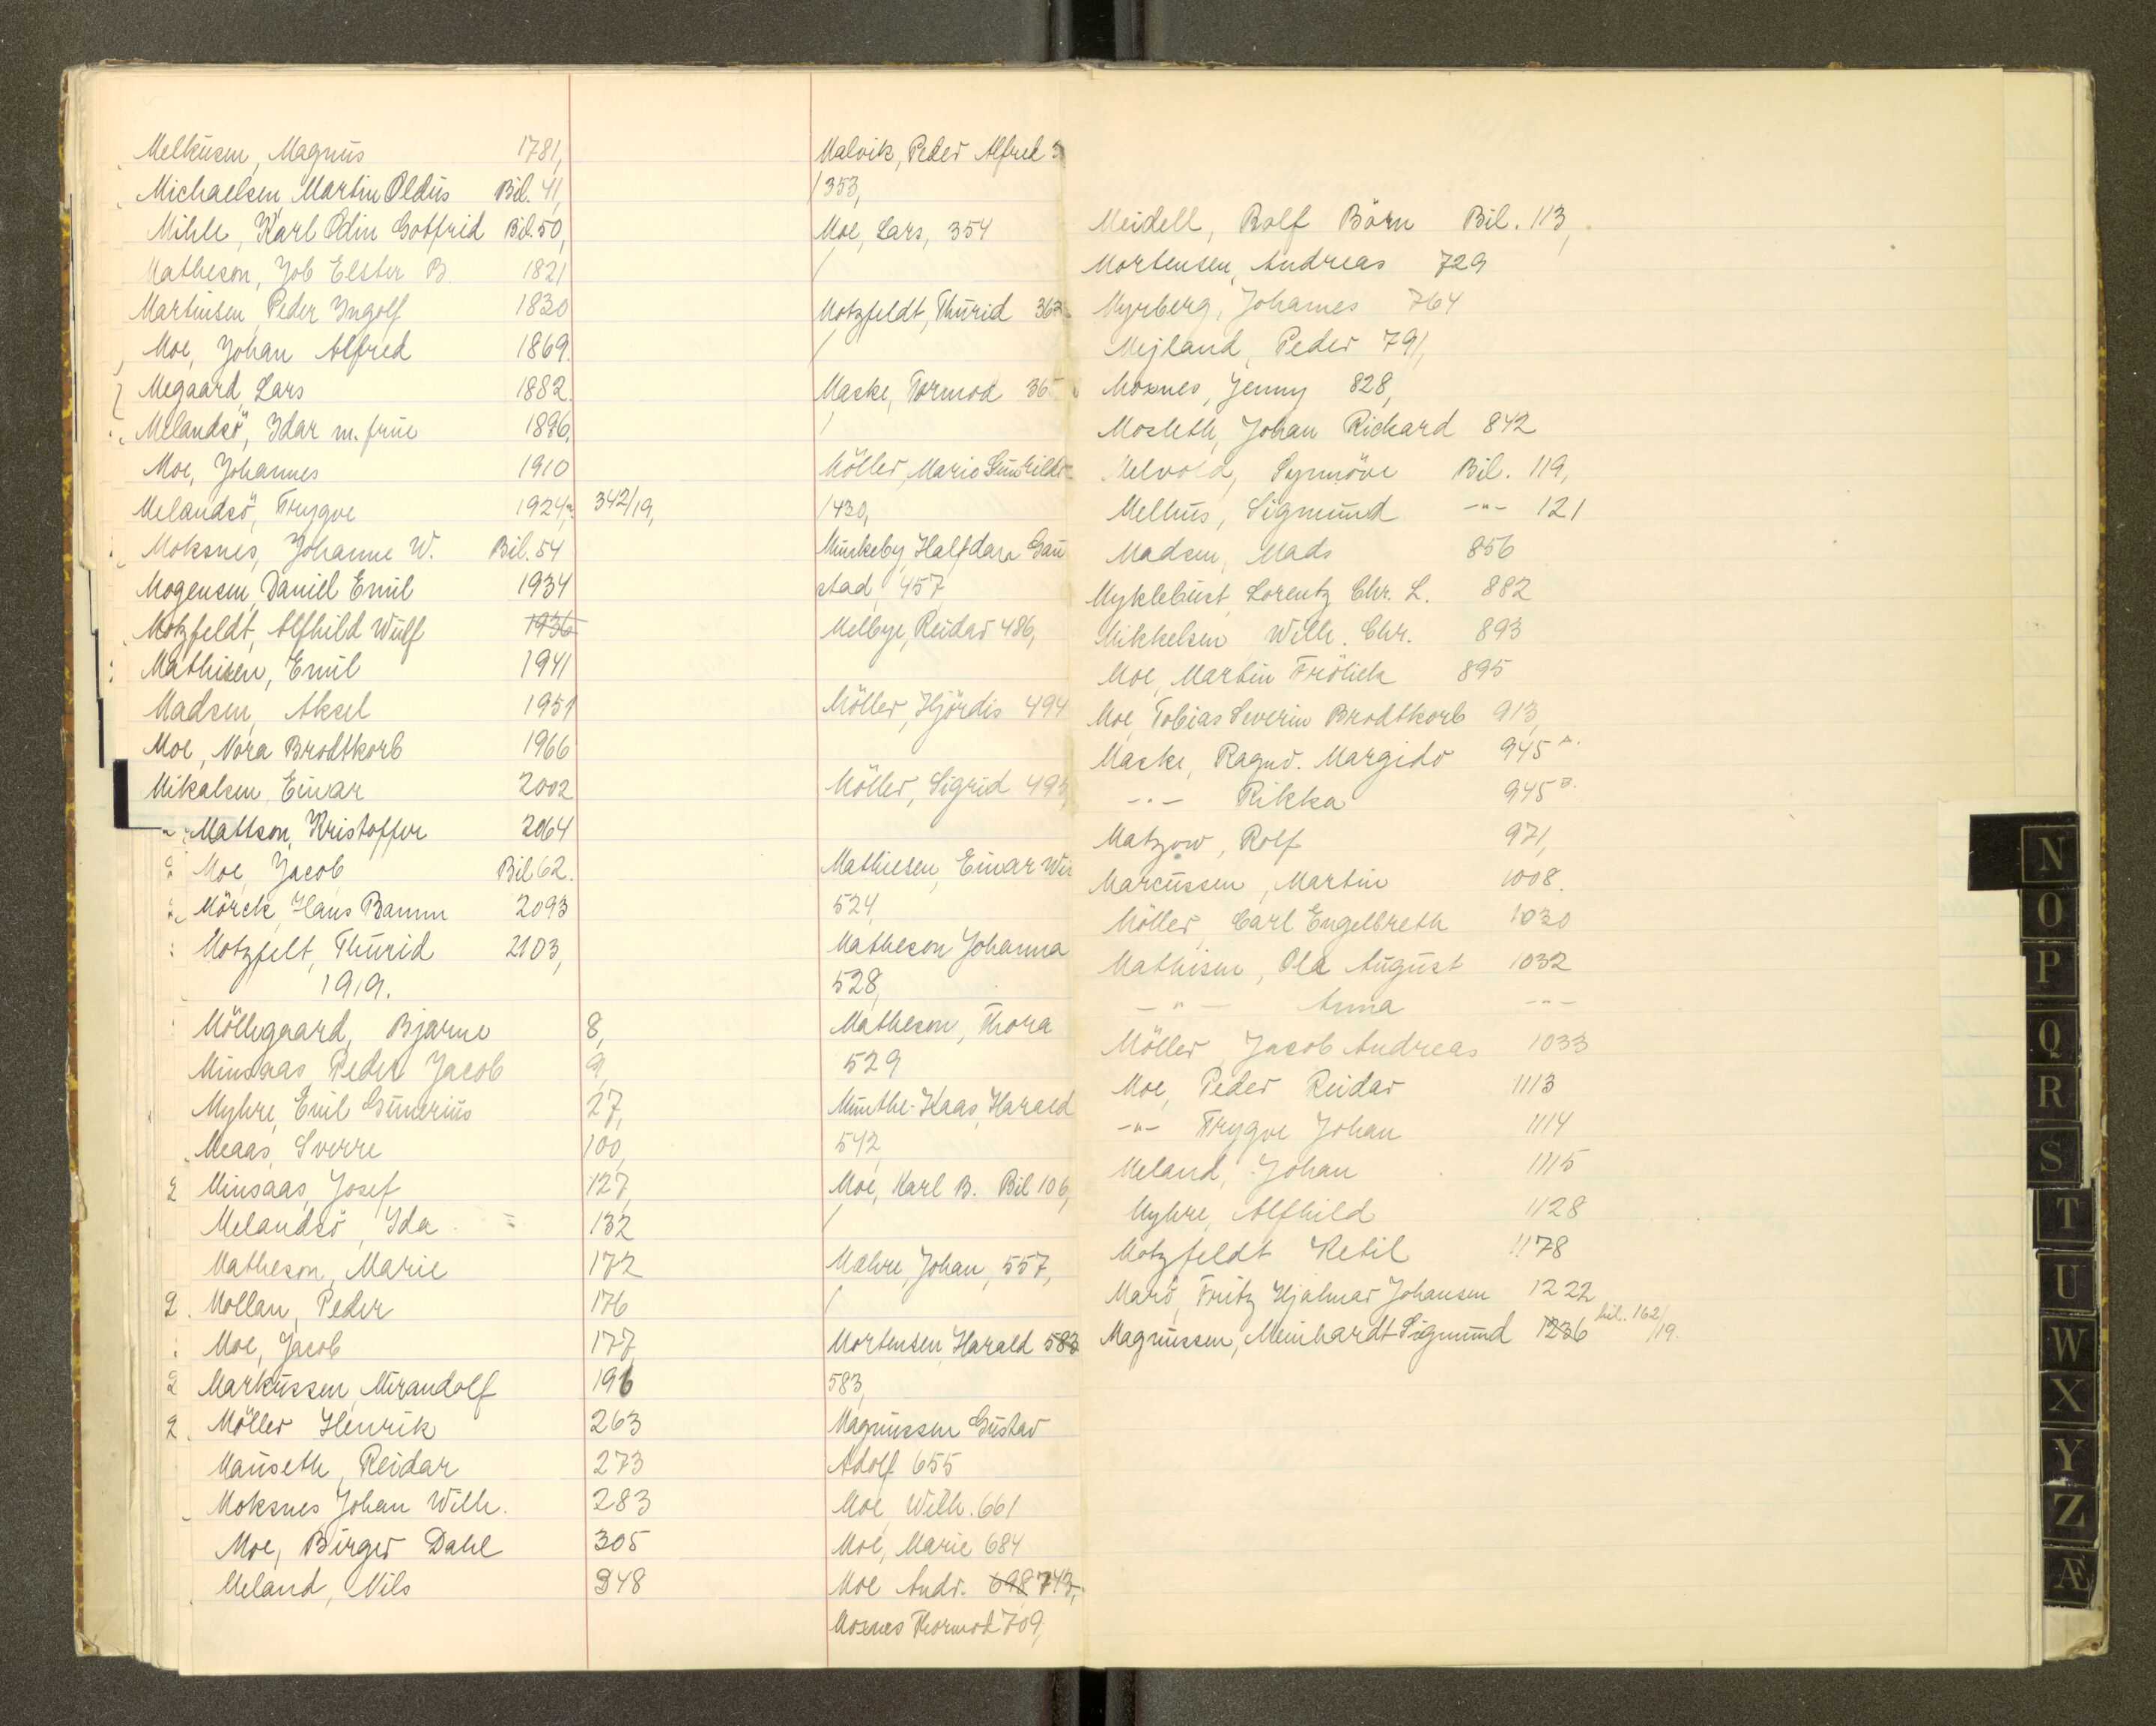 Melhusen, Magnus 1781,
Michaelsen, Martin Oldus Bil. 41,
Mihle, Karl Odin Gotfrid Bil. 50,
Matheson, Job Elster B. 1821
Martinsen, Peder Ingolf 1830
Moe, Johan Alfred 1869.
Megaard, Lars 1882.
Melandsö, Idar m. frue 1896,
Moe, Johannes 1910
Melandsö, Trygve 1924, 342/19,
Moksnes, Johanne W. Bil. 54
Mogensen, Daniel Emil 1934
Motzfeldt, Alfhild Wulf 1936
Mathisen, Emil 1941
Madsen, Aksel 1951
Moe, Nora Brodtkorb 1966
Mikalsen, Einar 2002
Mattson, Kristoffer 2064
Moe, Jacob Bil 62.
Mörck, Hans Bamm 2093
Motzfelt, Thurid 2103,
1919.
Möllegaard, Bjarne 8,
Minsaas, Peder Jacob 9,
Myhre, Emil Gunerius 27,
Meaas, Sverre 100,
Minsaas, Josef 127,
Melandsö, Ida 132
Matheson, Marie 172
Mollan, Peder 176
Moe, Jacob 177,
Markussen, Mirandolf 196
Möller Henrik 263
Mauseth, Reidar 273
Moksnes, Johan Wilh. 283
Moe, Birger Dahl 305
Meland, Nils 348
Malvik, Peder Alfred
353,
Moe, Lars, 354
Motzfeldt, Thurid 363
Maske, Tormod 36
Möller, Marie Gunhilde
430,
Munkeby, Halfdan Gau
stad, 457,
Melbye, Reidar 486,
Möller, Hjördis 494
Möller, Sigrid 495,
Mathiesen, Einar Wi
524,
Matheson Johanna
528,
Matheson, Thora
529
Munthe-Kaas, Harald
542,
Moe, Karl B. Bil 106,
Mæhre, Johan, 557,
Mortensen, Harald 583
583,
Magnussen Gustav
Adolf 655
Moe, Wilh. 661
Moe, Marie 684
Moe Andr. 698 743,
Moxnes Thormod 709,
Meidell, Rolf Börn Bil. 113,
Mortensen, Andreas 729
Myrberg, Johannes 764
Mejland, Peder 791,
Moxnes, Jenny 828,
Mosleth, Johan Richard 842
Melvold, Synnöve Bil. 119,
Melhus, Sigmund -"- 121
Madsen, Mads 856
Myklebust, Lorentz Chr. L. 882
Mikkelsen Wilh. Chr. 893
Moe, Martin Frölich 895
Moe, Tobias Severin Brodtkorb 913,
Maske, Ragnv. Margido 945 A.
-"- Rikka 945 B.
Matzow, Rolf 971,
Marcussen, Martin 1008.
Möller, Carl Engelbreth 1030
Mathisen, Ola August 1032
-"- Anna -"-
Möller, Jacob Andreas 1033
Moe, Peder Reidar 1113
-"- Trygve Johan 1114
Meland, Johan 1115
Myhre, Alfhild 1128
Motzfeldt Ketil 1178
Marö, Fritz Hjalmar Johansen 1222
Magnussen, Meinhardt Sigmund 1236 bil. 162/19.
N
O
P
Q
R
S
T
U
W
X
Y
Z
Æ